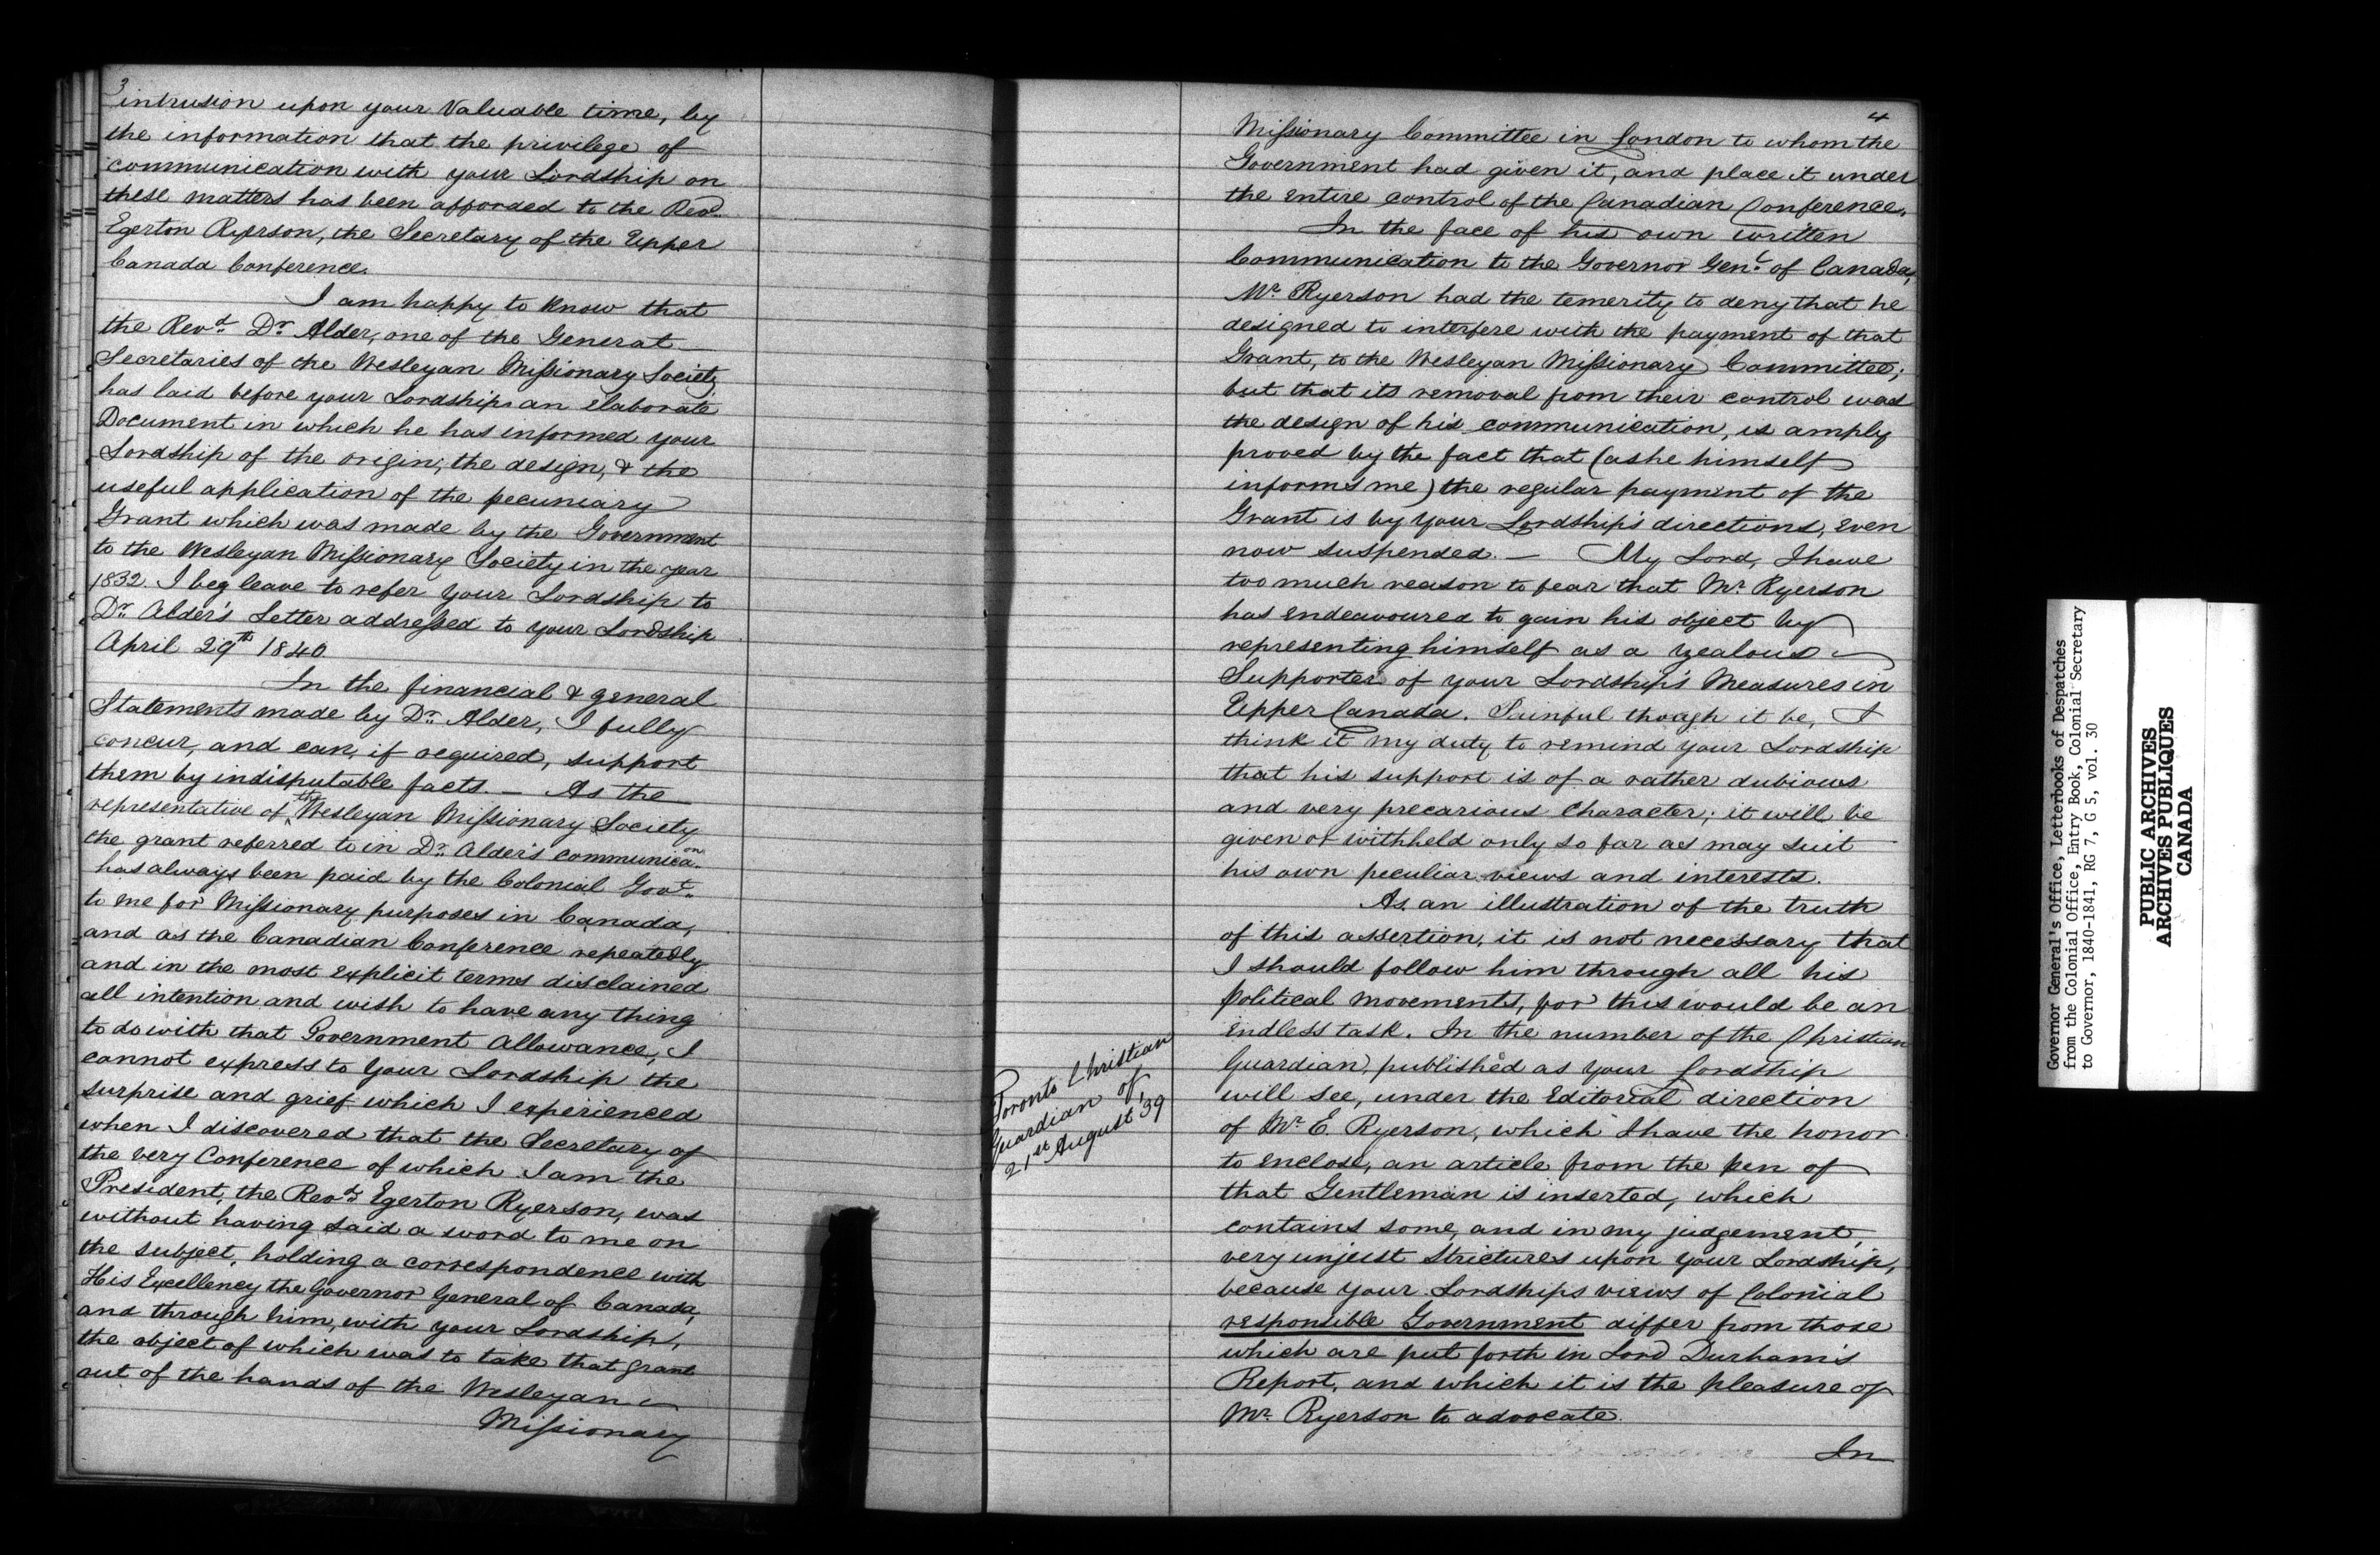 3
intrusion upon your Valuable time, by
the information that the privilege of
communication with your Lordship on
these matters has been afforded to the Revd.
Egerton Ryerson, the Secretary of the Upper
Canada Conference.
I am happy to know that
the Revd. Dr. Alder, one of the General
Secretaries of the Wesleyan Missionary Society,
has laid before your Lordship an elaborate
Document in which he has informed your
Lordship of the origin, the design, & the
useful application of the pecuniary
Grant which was made by the Government
to the Wesleyan Missionary Society in the year
1832. I beg leave to refer your Lordship to
Dr. Alder's Letter addressed to your Lordship
April 29th 1840.
In the financial & general
Statements made by Dr. Alder, I fully
concur, and can, if required, support
them by indisputable facts. – As the
representative of the Wesleyan Missionary Society
the grant referred to in Dr. Alder's communicaon.
has always been paid by the Colonial Govt.
to me for Missionary purposes in Canada,
and as the Canadian Conference repeatedly
and in the most explicit terms disclaimed
all intention and wish to have any thing
to do with that Government Allowance, I
cannot express to your Lordship the
surprise and grief which I experienced
when I discovered that the Secretary of
the very Conference of which I am the
President, the Revd. Egerton Ryerson, was
without having said a word to me on
the subject, holding a correspondence with
His Excellency the Governor General of Canada,
and through him, with your Lordship,
the object of which was to take that grant
out of the hands of the Wesleyan
Missionary
4
Missionary Committee in London to whom the
Government had given it, and place it under
the entire control of the Canadian Conference.
In the face of his own written
Communication to the Governor Genl. of Canada,
Mr. Ryerson had the temerity to deny that he
designed to interfere with the payment of that
Grant, to the Wesleyan Missionary Committee;
but that its removal from their control was
the design of his communication, is amply
proved by the fact that (as he himself
informs me) the regular payment of the
Grant is by your Lordship's directions, even
now suspended. – My Lord, I have
too much reason to fear that Mr. Ryerson
has endeavoured to gain his object by
representing himself as a zealous
Supporter of your Lordship's Measures in
Upper Canada. Painful though it be, I
think it my duty to remind your Lordship
that his support is of a rather dubious
and very precarious Character; it will be
given or withheld only so far as may suit
his own peculiar views and interests.
As an illustration of the truth
of this assertion, it is not necessary that
I should follow him through all his
political movements, for this would be an
endless task. In the number of the Christian
Guardian, published as your Lordship
will see, under the Editorial direction
of Mr. E. Ryerson, which I have the honor
to enclose, an article from the pen of
that Gentleman is inserted, which
contains some, and in my judgement,
very unjust Strictures upon your Lordship,
because your Lordships views of Colonial
responsible Government differ from those
which are put forth in Lord Durham's
Report, and which it is the pleasure of
Mr. Ryerson to advocate.
In
Toronto Christian
Guardian of
21st August 39
Governor General's Office, Letterbooks of Despatches
from the Colonial Office, Entry Book, Colonial Secretary
to Governor, 1840-1841, RG 7, G 5, vol. 30
PUBLIC ARCHIVES
ARCHIVES PUBLIQUES
CANADA